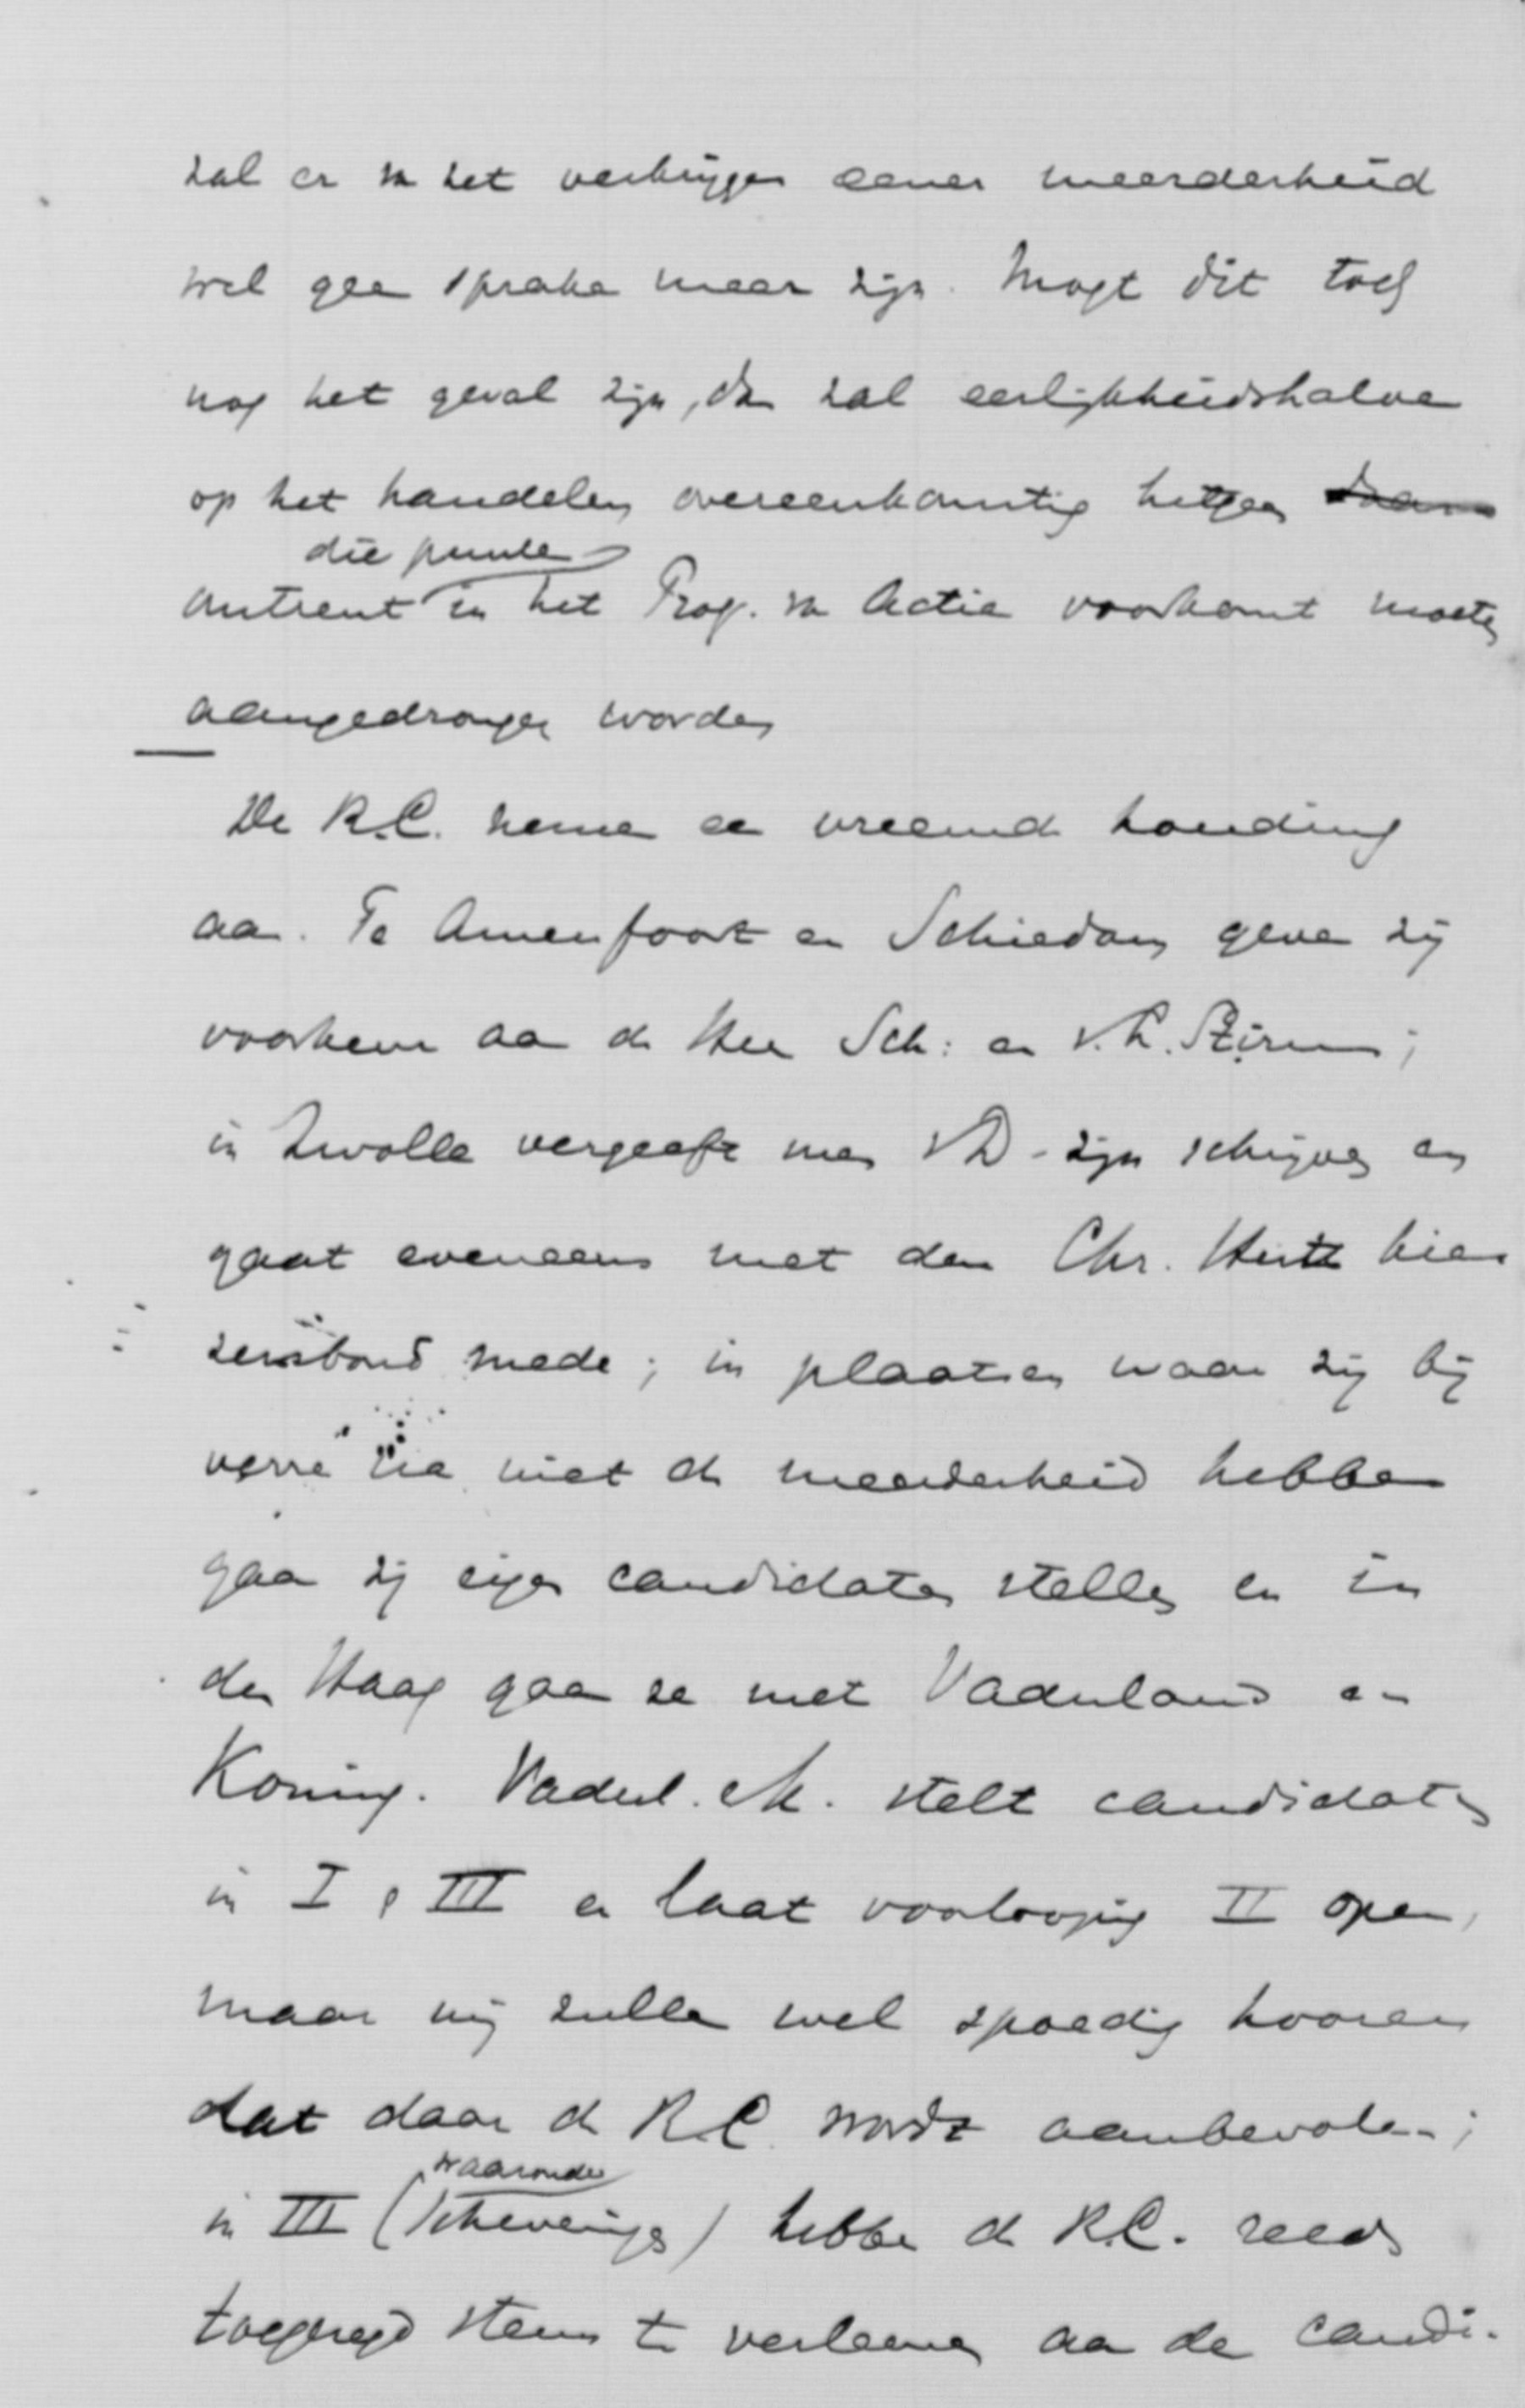 zal er van het verkrijgen eener meerderheid
wel geen sprake meer zijn. Mogt dit toch
nog het geval zijn, dan zal eerlijkheidshalve
op het handelen overeenkomstig hetgeen
die punten
omtrent in het Prog. van Actie voorkomt moeten
aangedrongen worden
De R.C. nemen een vreemde houding
aan. Te Amersfoort en Schiedam geven zij
voorkeur aan de Heer Sch: en v. L. Stirum;
in Zwolle vergeeft men v D - zijn schrijven en
gaat eveneens met den Chr. Hist. kie-
zersbond mede; in plaatsen waar zij bij
verre na niet de meerderheid hebben
gaan zij eigen candidaten stellen en in
den Haag gaan ze met Vaderland en
Koning. Vaderl. en K. stelt candidaten
in I & III en laat voorloopig II open,
maar wij zullen wel spoedig hooren
dat daar de R.C. wordt aanbevolen;
waaronder
in III (Scheveningen) hebben de R.C. reeds
toegezegd steun te verleenen aan de candi-